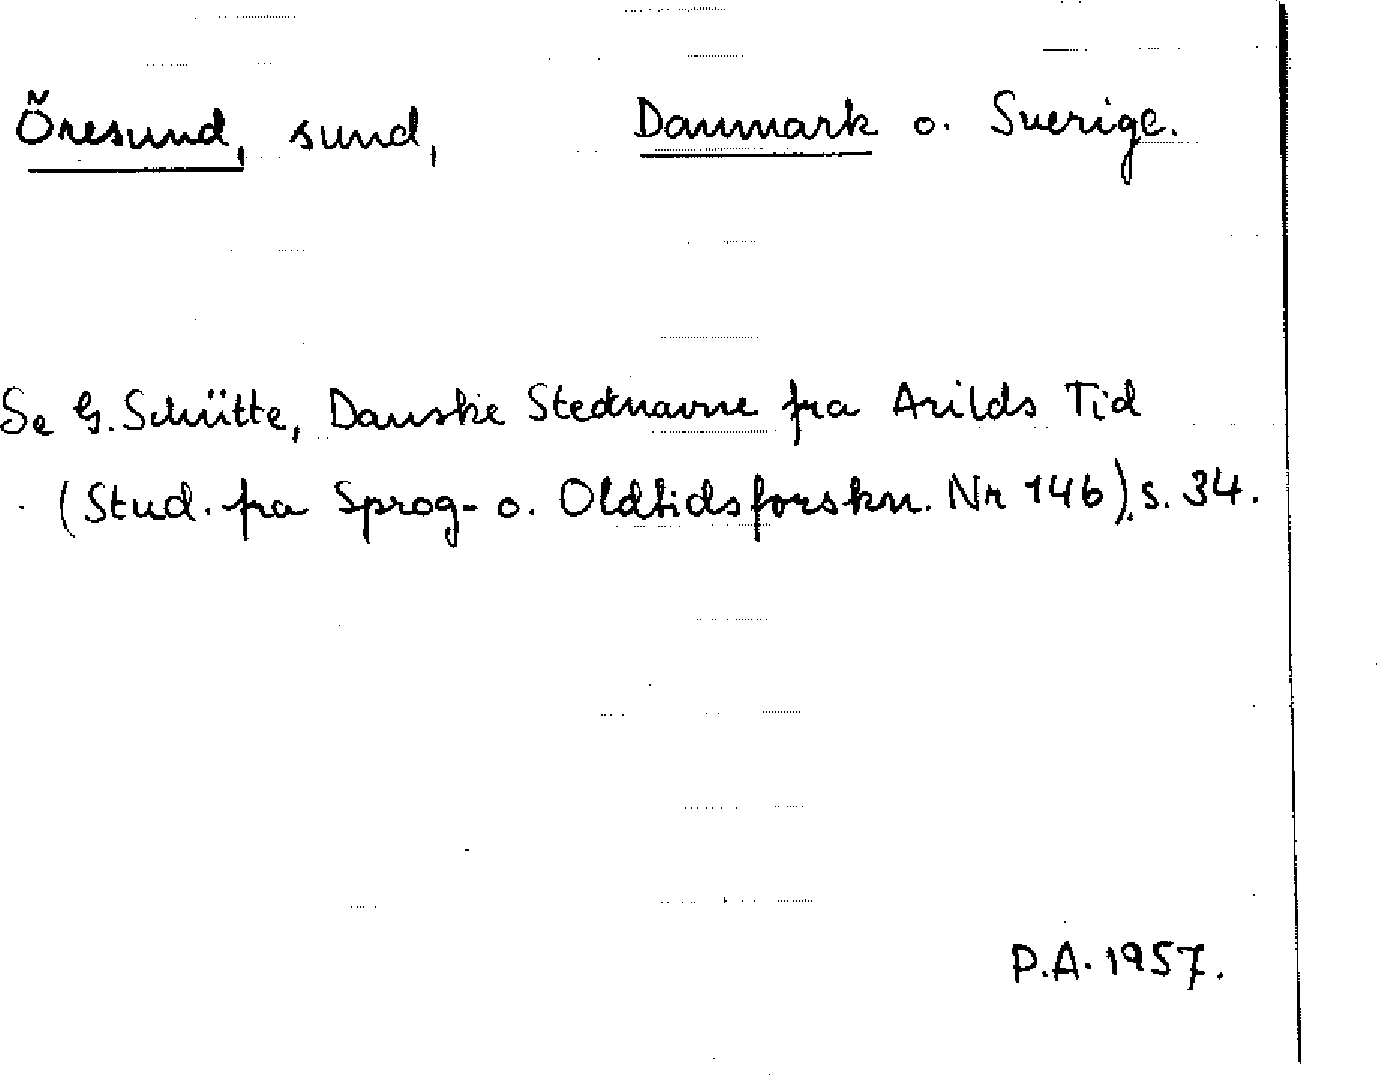 Öresund, sund, Danmark o. Sverige.
Se G. Schütte, Danske Stednavne fra Arilds Tid
(Stud. fra Sprog- o. Oldtidsforskn. Nr 146), s. 34.
P.A. 1957.